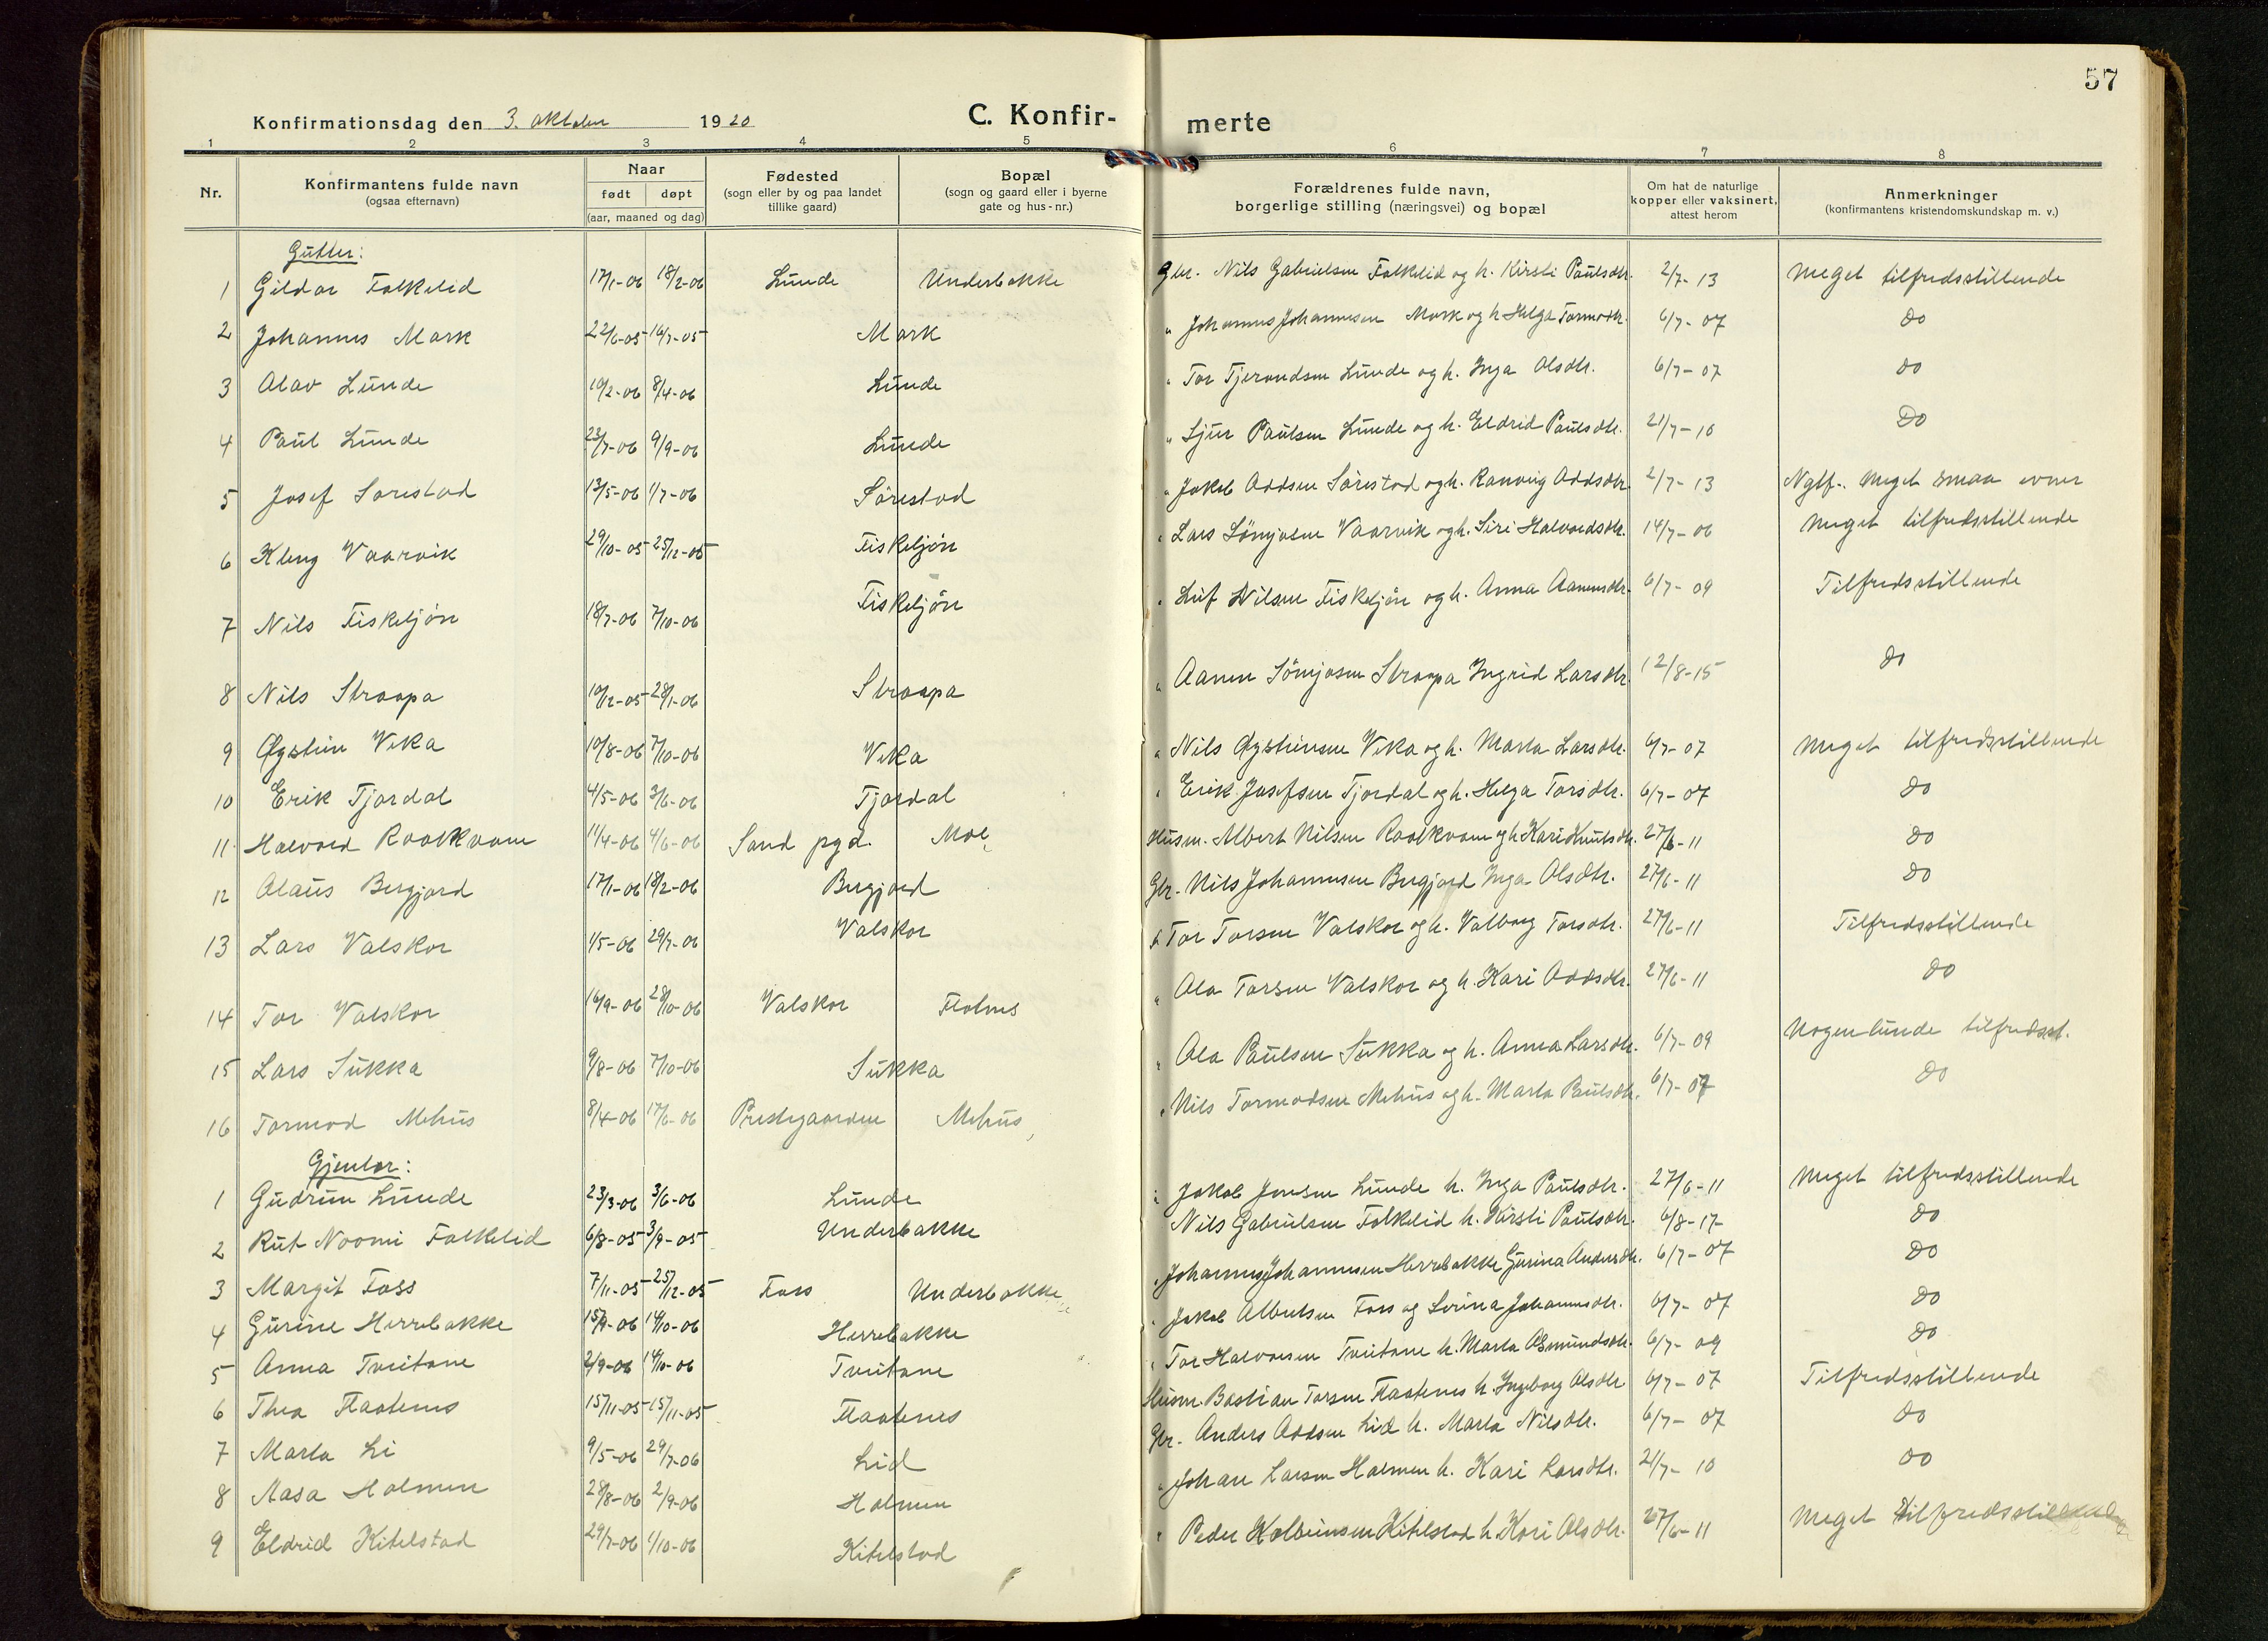 57
Konfirmationsdag den 3. oktober 1920
C. Konfir-merte
1 2 3 4 5 6 7 8
Nr.
Konfirmantens fulde navn
(ogsaa efternavn)
Naar
født døpt
(aar, maaned og dag)
Fødested
(sogn eller by og paa landet
tillike gaard)
Bopæl
(sogn og gaard eller i byerne
gate og hus-nr.)
Forældrenes fulde navn,
borgerlige stilling (næringsvei) og bopæl
Om hat de naturlige
kopper eller vaksinert,
attest herom
Anmerkninger
(konfirmantens kristendomskundskap m. v.)
Gutter:
1 Gildor Folkelid 17/1-06 18/2-06 Lunde Underbakke Gbr. Nils Gabrielsen Folkelid og h. Kirsti Paulsdtr. 2/7-13 Meget tilfredsstillende
2 Johannes Mark 22/6-05 16/7-05 Mark " Johannes Johannesen Mark og h. Helga Tormodtr. 6/7-07 do
3 Olav Lunde 10/2-06 8/4-06 Lunde " Tor Tjerandsen Lunde og h. Inga Olsdtr. 6/7-07 do
4 Paul Lunde 23/7-06 9/9-06 Lunde " Sjur Paulsen Lunde og h. Eldrid Paulsdtr. 21/7-10 Do
5 Josef Sørestad 13/5-06 1/7-06 Sørestad " Jakob Oddsen Sørestad og h. Ranveig Oddsdtr. 2/7-13 Ngtf. Meget smaa evner
6 Kleng Vaarvik 29/10-05 25/12-05 Fiskeljøn " Lars Sømjosen Vaarvik og h. Siri Halvordsdtr. 14/7-06 Meget tilfredsstillende
7 Nils Fiskeljøn 18/7-06 7/10-06 Fiskeljøn " Leif Nilsen Fiskeljøn og h. Anna Aanensdtr. 6/7-09 Tilfredsstillende
8 Nils Straapa 10/12-05 28/1-06 Straapa " Aanen Sømjosen Straapa Ingrid Larsdtr. 12/8-15 do
9 Øystein Veka 10/8-06 7/10-06 Veka " Nils Øysteinsen Veka og h. Marta Larsdtr. 6/7-07 Meget tilfredsstillende
10 Erik Tjordal 4/5-06 3/6-06 Tjordal " Erik Josefsen Tjordal og h. Helga Torsdtr. 6/7-07 do
11 Halvord Raakkvam 11/4-06 4/6-06 Sand pgd. Moe, Husm. Albert Nilsen Raakkvam og h. Kari Knutsdtr. 27/6-11 do
12 Olaus Bergjord 17/1-06 18/2-06 Bergjord Gbr. Nils Johannesen Bergjord Inga Olsdtr. 27/6-11 do
13 Lars Valskor 1/5-06 29/7-06 Valskor " Tor Torsen Valskor og h. Valborg Torsdtr. 27/6-11 Tilfredsstillende
14 Tor Valskor 16/9-06 28/10-06 Valskor Flones " Ola Torsen Valskor og h. Kari Oddsdtr. 27/6-11 do
15 Lars Sukka 9/8-06 7/10-06 Sukka " Ola Paulsen Sukka og h. Anna Larsdtr. 6/7-09 Nogenlunde tilfredsst.
16 Tormod Mehus 8/4-06 17/6-06 Prestegaarden Mehus, " Nils Tormodsen Mehus og h. Marta Paulsdtr. 6/7-07 do
Gjentor:
1 Gudrun Lunde 23/3-06 3/6-06 Lunde " Jakob Jonsen Lunde h. Inga Paulsdtr. 27/6-11 Meget tilfredsstillende
2 Rut Noomi Folkelid 6/8-05 3/9-05 Underbakke Nils Gabrielsen Folkelid h. Kirsti Paulsdtr. 6/8-17 do
3 Margit Foss 7/11-05 25/12-05 Foss Underbakke " Johannes Johannesen Herrebakke Gurina Andersdtr. 6/7-07 do
4 Gurine Herrebakke 15/9-06 14/10-06 Herrebakke " Jakob Albertsen Foss og Serina Johannesdtr. 6/7-07 do
5 Anna Tveitane 2/9-06 14/10-06 Tveitane " Tor Halvorsen Tveitane h. Marta Osmundsdtr. 6/7-09 do
6 Thea Flaatenes 15/11-05 15/11-05 Flaatenes Husm. Bastian Torsen Flaatenes h. Ingeborg Olsdtr 6/7-07 Tilfredsstillende
7 Marta Li 9/5-06 29/7-06 Lid Gbr. Anders Oddsen Lid h. Marta Nilsdtr. 6/7-07 do
8 Aasa Holmen 28/8-06 2/9-06 Holmen " Johan Larsen Holmen h. Kari Larsdtr. 21/7-10 do
9 Eldrid Kitelstad 29/7-06 1/10-06 Kitelstad " Peder Kolbeinsen Kitelstad h. Kari Olsdtr. 27/6-11 Meget tilfredsstillende